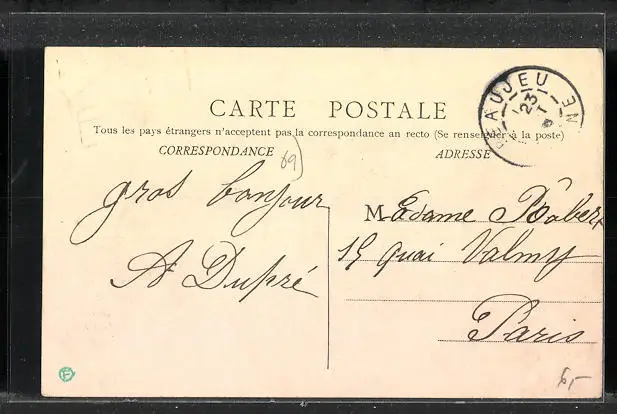 CARTE POSTALE
Tous les pays étrangers n'acceptent pas la correspondance au recto (Se renseigner à la poste)
CORRESPONDANCE
ADRESSE
BEAUJEU
23
NE
69)
gros bonjour
A Dupré
Madame Robert
15 quai Valmy
Paris
6,-